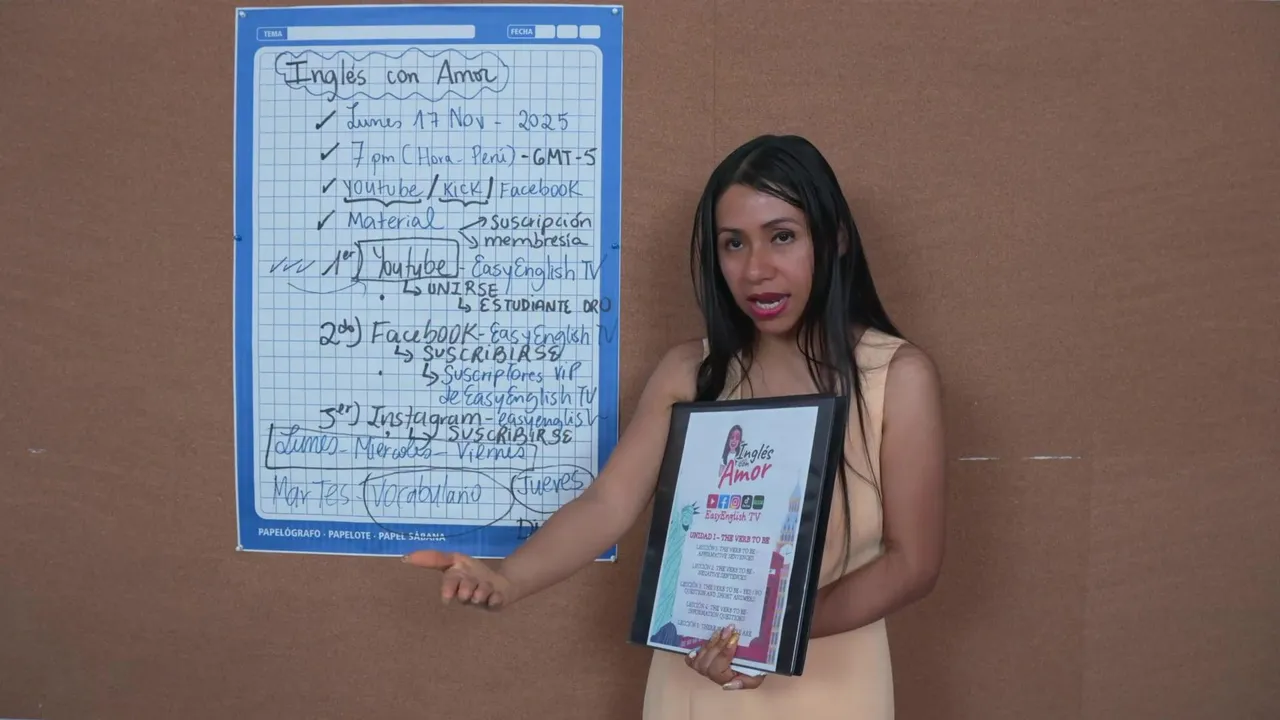 TEMA
FECHA
Inglés con Amor
✓ Lunes 17 Nov - 2025
✓ 7 pm (Hora-Perú) - GMT-5
✓ Youtube / Kick / Facebook
✓ Material → Suscripción
→ membresía
1er) Youtube - EasyEnglish TV
↳ UNIRSE
↳ ESTUDIANTE ORO
2do) Facebook - EasyEnglish TV
↳ SUSCRIBIRSE
↳ Suscriptores VIP
de EasyEnglish TV
3er) Instagram - easyenglis
↳ SUSCRIBIRSE
Lunes - Miércoles - Viernes
Martes Vocabulario Jueves
PAPELÓGRAFO · PAPELOTE · PAPEL SÁBANA
Inglés
con
Amor
EasyEnglish TV
UNIDAD 1 - THE VERB TO BE
LECCIÓN 1: THE VERB TO BE -
AFFIRMATIVE SENTENCES
LECCIÓN 2: THE VERB TO BE -
NEGATIVE SENTENCES
LECCIÓN 3: THE VERB TO BE - YES / NO
QUESTION AND SHORT ANSWERS
LECCIÓN 4: THE VERB TO BE -
INFORMATION QUESTIONS
LECCIÓN 5: THERE ARE